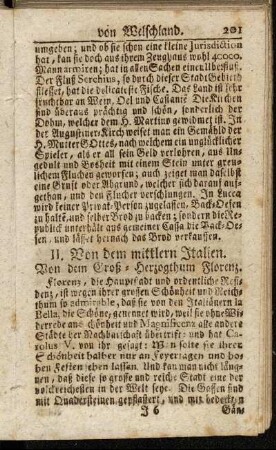 von Welschland. 201
umgeben; und ob sie schon eine kleine Jurisdiction
hat, kan sie doch aus ihrem Zeughaus wohl 40000.
Mann armiren; hat in allen Sachen einen Uberfluß.
Der Fluß Serchius, so durch dieser Stadt Gebieth
fliesset, hat die delicateste Fische. Das Land ist sehr
fruchtbar an Wein, Oel und Castanien. Die Kirchen
sind überaus prächtig und schön, sonderlich der
Dohm, welcher dem H. Martino gewidmet ist. In
der Augustiner-Kirch weiset man ein Gemähld der
H. Mutter GOttes, nach welchem ein unglücklicher
Spieler, als er all sein Geld verlohren, aus Un-
gedult und Bosheit mit einem Stein unter greu-
lichem Fluchen geworfen; auch zeiget man daselbst
eine Gruft oder Abgrund, welcher sich darauf aufge-
than, und den Flucher verschlungen. In Lucca
wird keiner Privat-Person zugelassen, Back-Oefen
zu halten, und selber Brod zu backen; sondern die Re-
publick unterhält aus gemeiner Cassa die Back-Oe-
fen, und lässet hernach das Brod verkauffen.
II. Von dem mittlern Italien.
Von dem Groß-Herzogthum Florenz.
Florenz, die Hauptstadt und ordentliche Resi-
denz, ist wegen ihrer grossen Schönheit und Reich-
thum so admirable, daß sie von den Italiänern la
Bella, die Schöne, genennet wird, weil sie ohne Wi-
derrede an Schönheit und Magnificenz alle andere
Städte der Nachbarschaft übertrift; und hat Ca-
rolus V. von ihr gesagt: Man solte sie ihrer
Schönheit halber nur an Feyertagen und ho-
hen Festen sehen lassen. Und kan man nicht läug-
nen, daß diese so grosse und reiche Stadt eine der
volckreichesten in der Welt seye. Die Gassen sind
mit Quadersteinen gepflastert, und mit bedeckten
J 6 Gän-